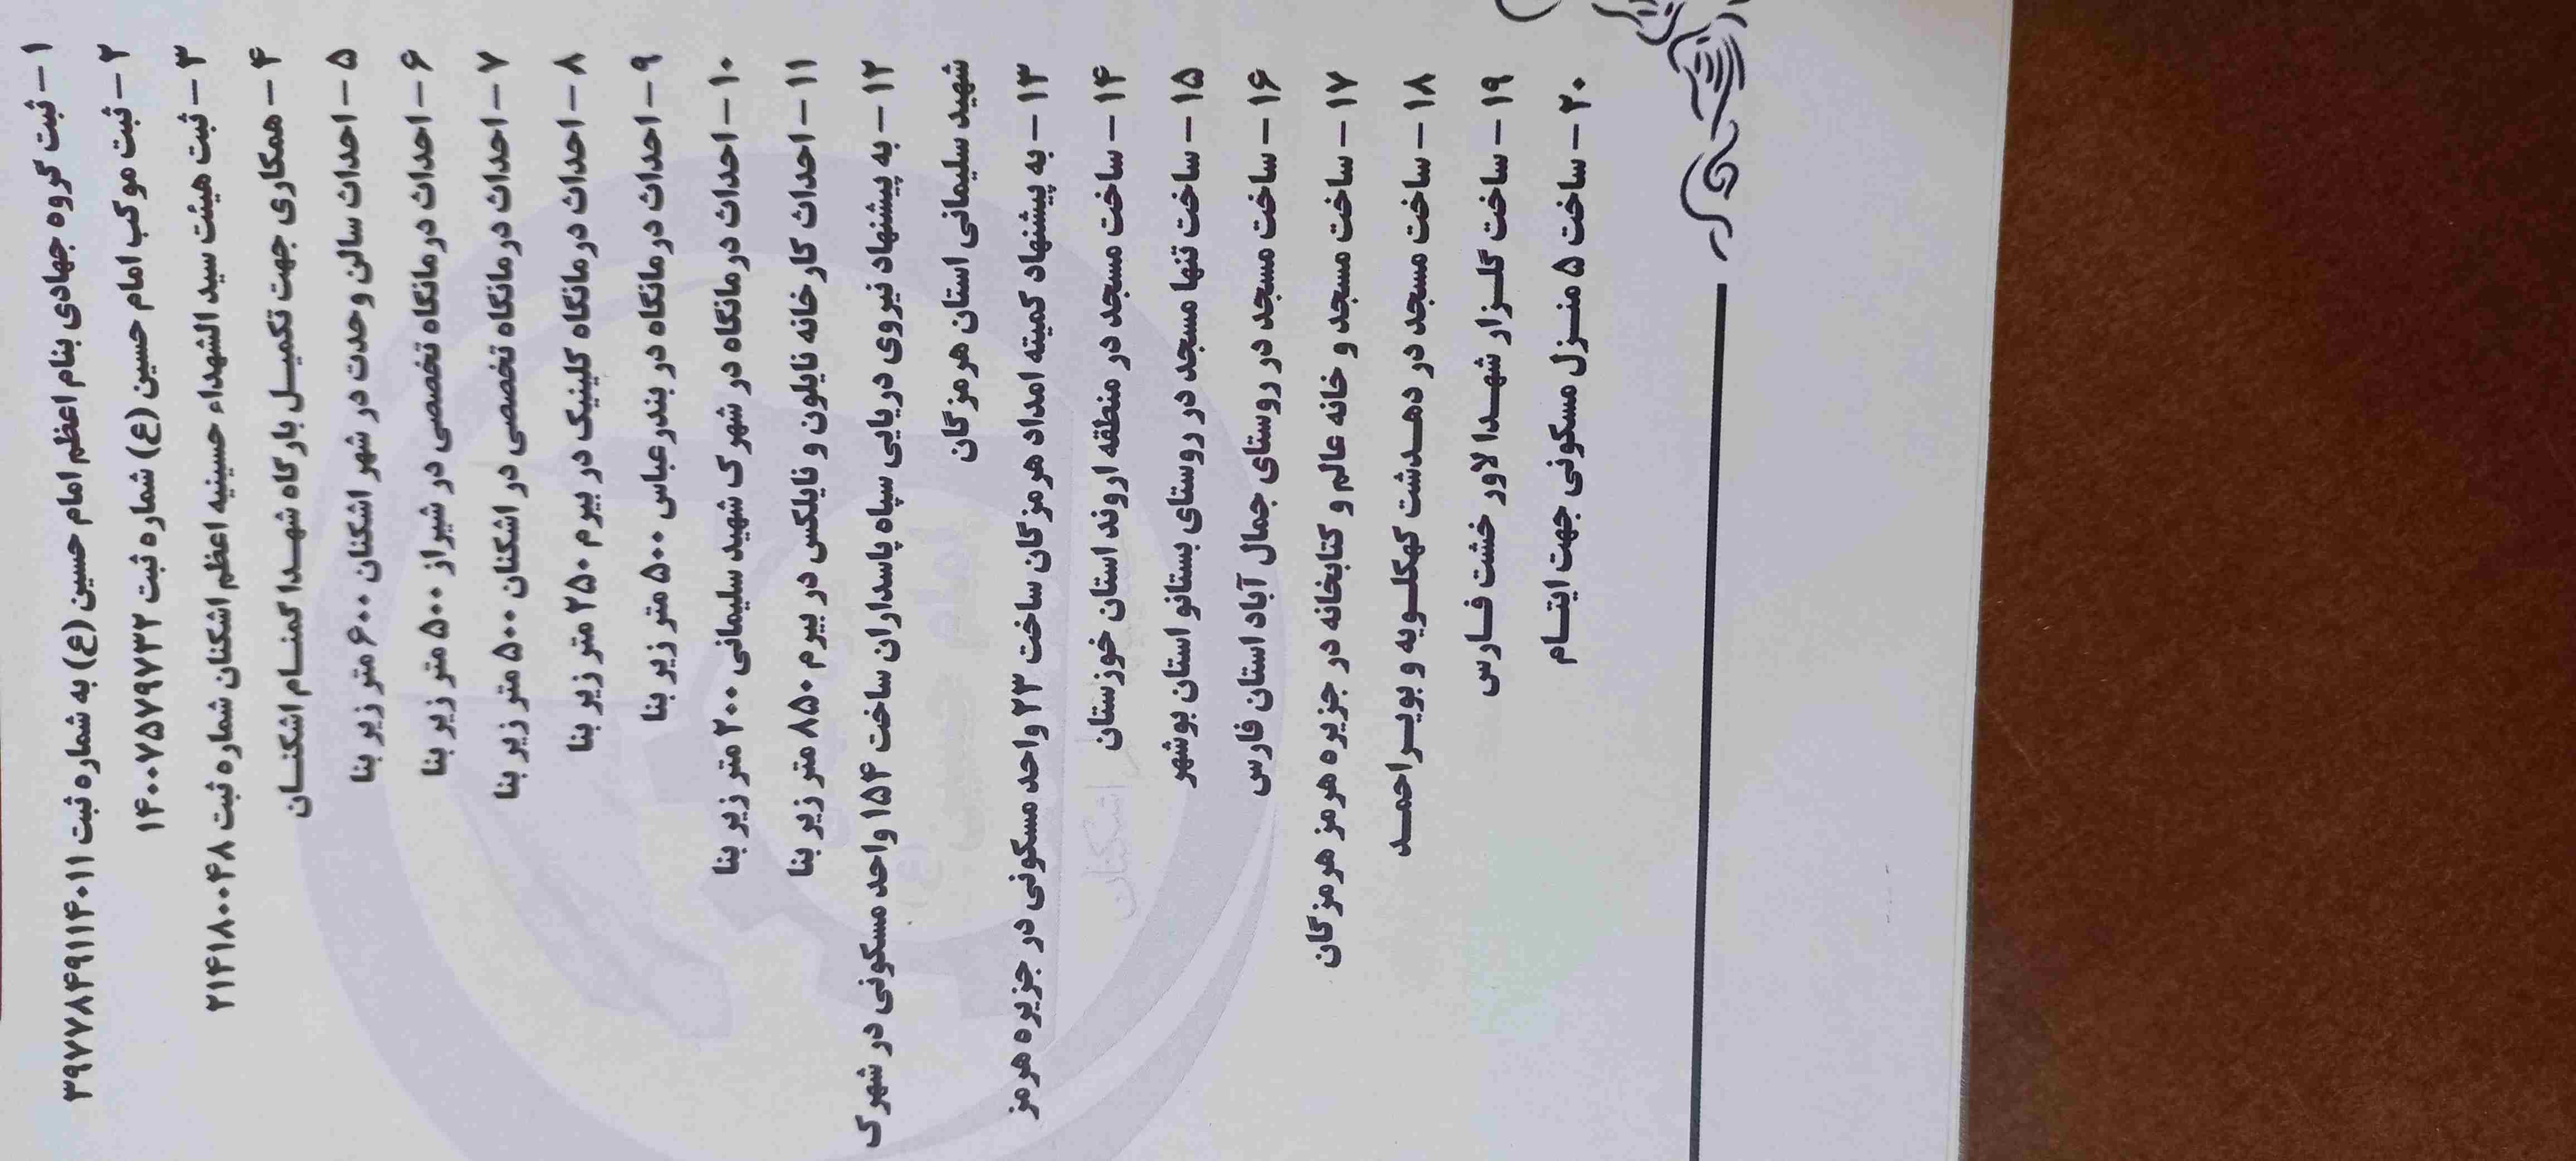 ۱ – ثبت گروه جهادی بنام اعظم امام حسین (ع) به شماره ثبت ۳۹۷۷۸۴۹۱۱۴۰۱۱
۲ – ثبت موکب امام حسین (ع) شماره ثبت ۱۴۰۰۷۵۷۹۷۳۲
۳ – ثبت هیئت سید الشهداء حسینیه اعظم اشکنان شماره ثبت ۲۱۴۱۸۰۰۴۸
۴ – همکاری جهت تکمیل بارگاه شهدا گمنام اشکنان
۵ – احداث سالن وحدت در شهر اشکنان ۶۰۰ متر زیر بنا
۶ – احداث درمانگاه تخصصی در شیراز ۵۰۰ متر زیر بنا
۷ – احداث درمانگاه تخصصی در اشکنان ۵۰۰ متر زیر بنا
۸ – احداث درمانگاه کلینیک در بیرم ۲۵۰ متر زیر بنا
۹ – احداث درمانگاه در بندرعباس ۵۰۰ متر زیر بنا
۱۰ – احداث درمانگاه در شهرک شهید سلیمانی ۲۰۰ متر زیر بنا
۱۱ – احداث کارخانه نایلون و نایلکس در بیرم ۸۵۰ متر زیر بنا
۱۲ – به پیشنهاد نیروی دریایی سپاه پاسداران ساخت ۱۵۴ واحد مسکونی در شهرک
شهید سلیمانی استان هرمزگان
۱۳ – به پیشنهاد کمیته امداد هرمزگان ساخت ۲۳ واحد مسکونی در جزیره هرمز
۱۴ – ساخت مسجد در منطقه اروند استان خوزستان
۱۵ – ساخت تنها مسجد در روستای بستانو استان بوشهر
۱۶ – ساخت مسجد در روستای جمال آباد استان فارس
۱۷ – ساخت مسجد و خانه عالم و کتابخانه در جزیره هرمز هرمزگان
۱۸ – ساخت مسجد در دهدشت کهکلویه و بویراحمد
۱۹ – ساخت گلزار شهدا لاور خشت فارس
۲۰ – ساخت ۵ منزل مسکونی جهت ایتام
امام حسین (ع)
اشکنان